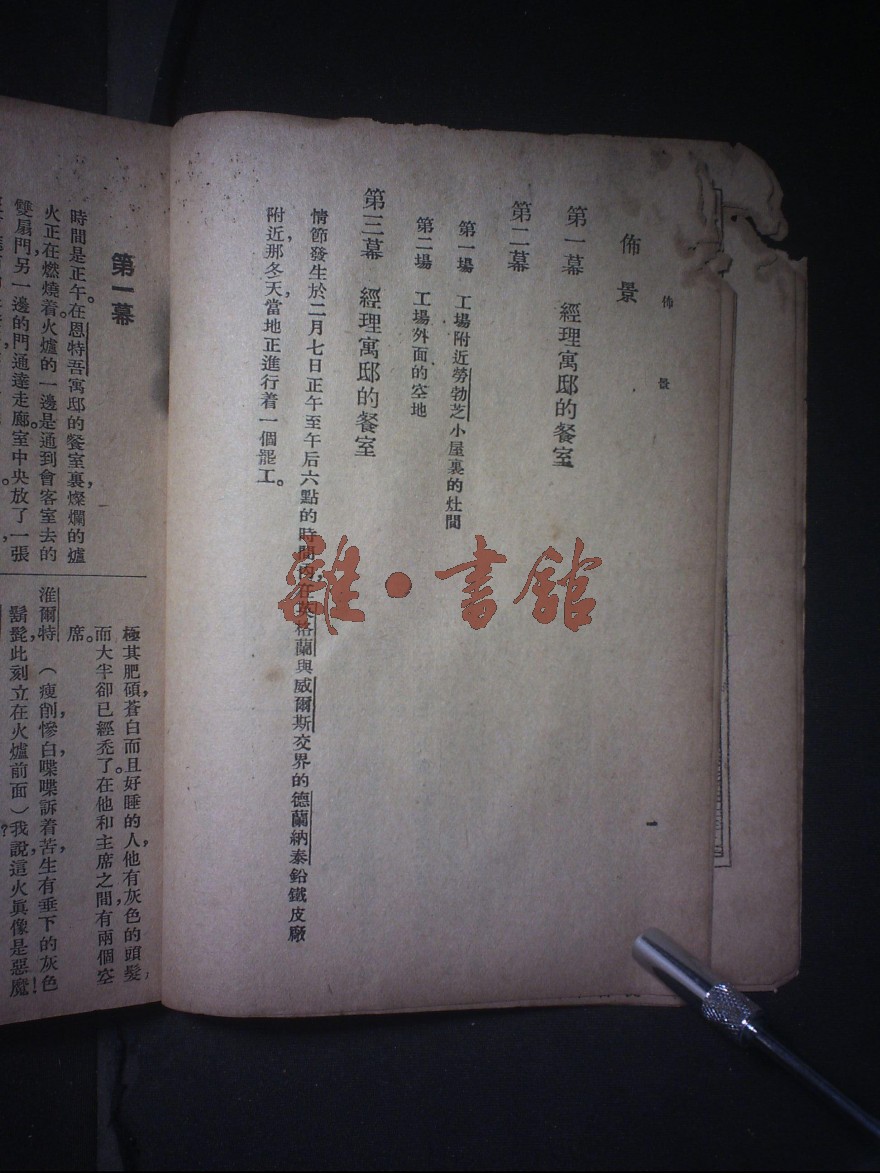 佈景
佈景
第一幕　經理寓邸的餐室
第二幕
第一場　工場附近勞勃芝小屋裏的灶間
第二場　工場外面的空地
第三幕　經理寓邸的餐室
情節發生於二月七日正午至午后六點的時間內，在英格蘭與威爾斯交界的德蘭納泰鉛鐵皮廠
附近，那冬天，當地正進行着一個罷工。
一
雜·書館
第一幕
時間是正午。在恩特吾寓邸的餐室裏，燦爛的爐
火正在燃燒着。火爐的一邊是通到會客室去的
雙扇門，另一邊的門通達走廊。室中央放了一張
極其肥碩，蒼白而且好睡的人，他有灰色的頭髮，
而大半卻已經禿了。在他和主席之間，有兩個空
席。
淮爾特　（瘦削，慘白，喋喋訴着苦，生有垂下的灰色
鬍髭，此刻立在火爐前面）我說，這火眞像是惡魔！